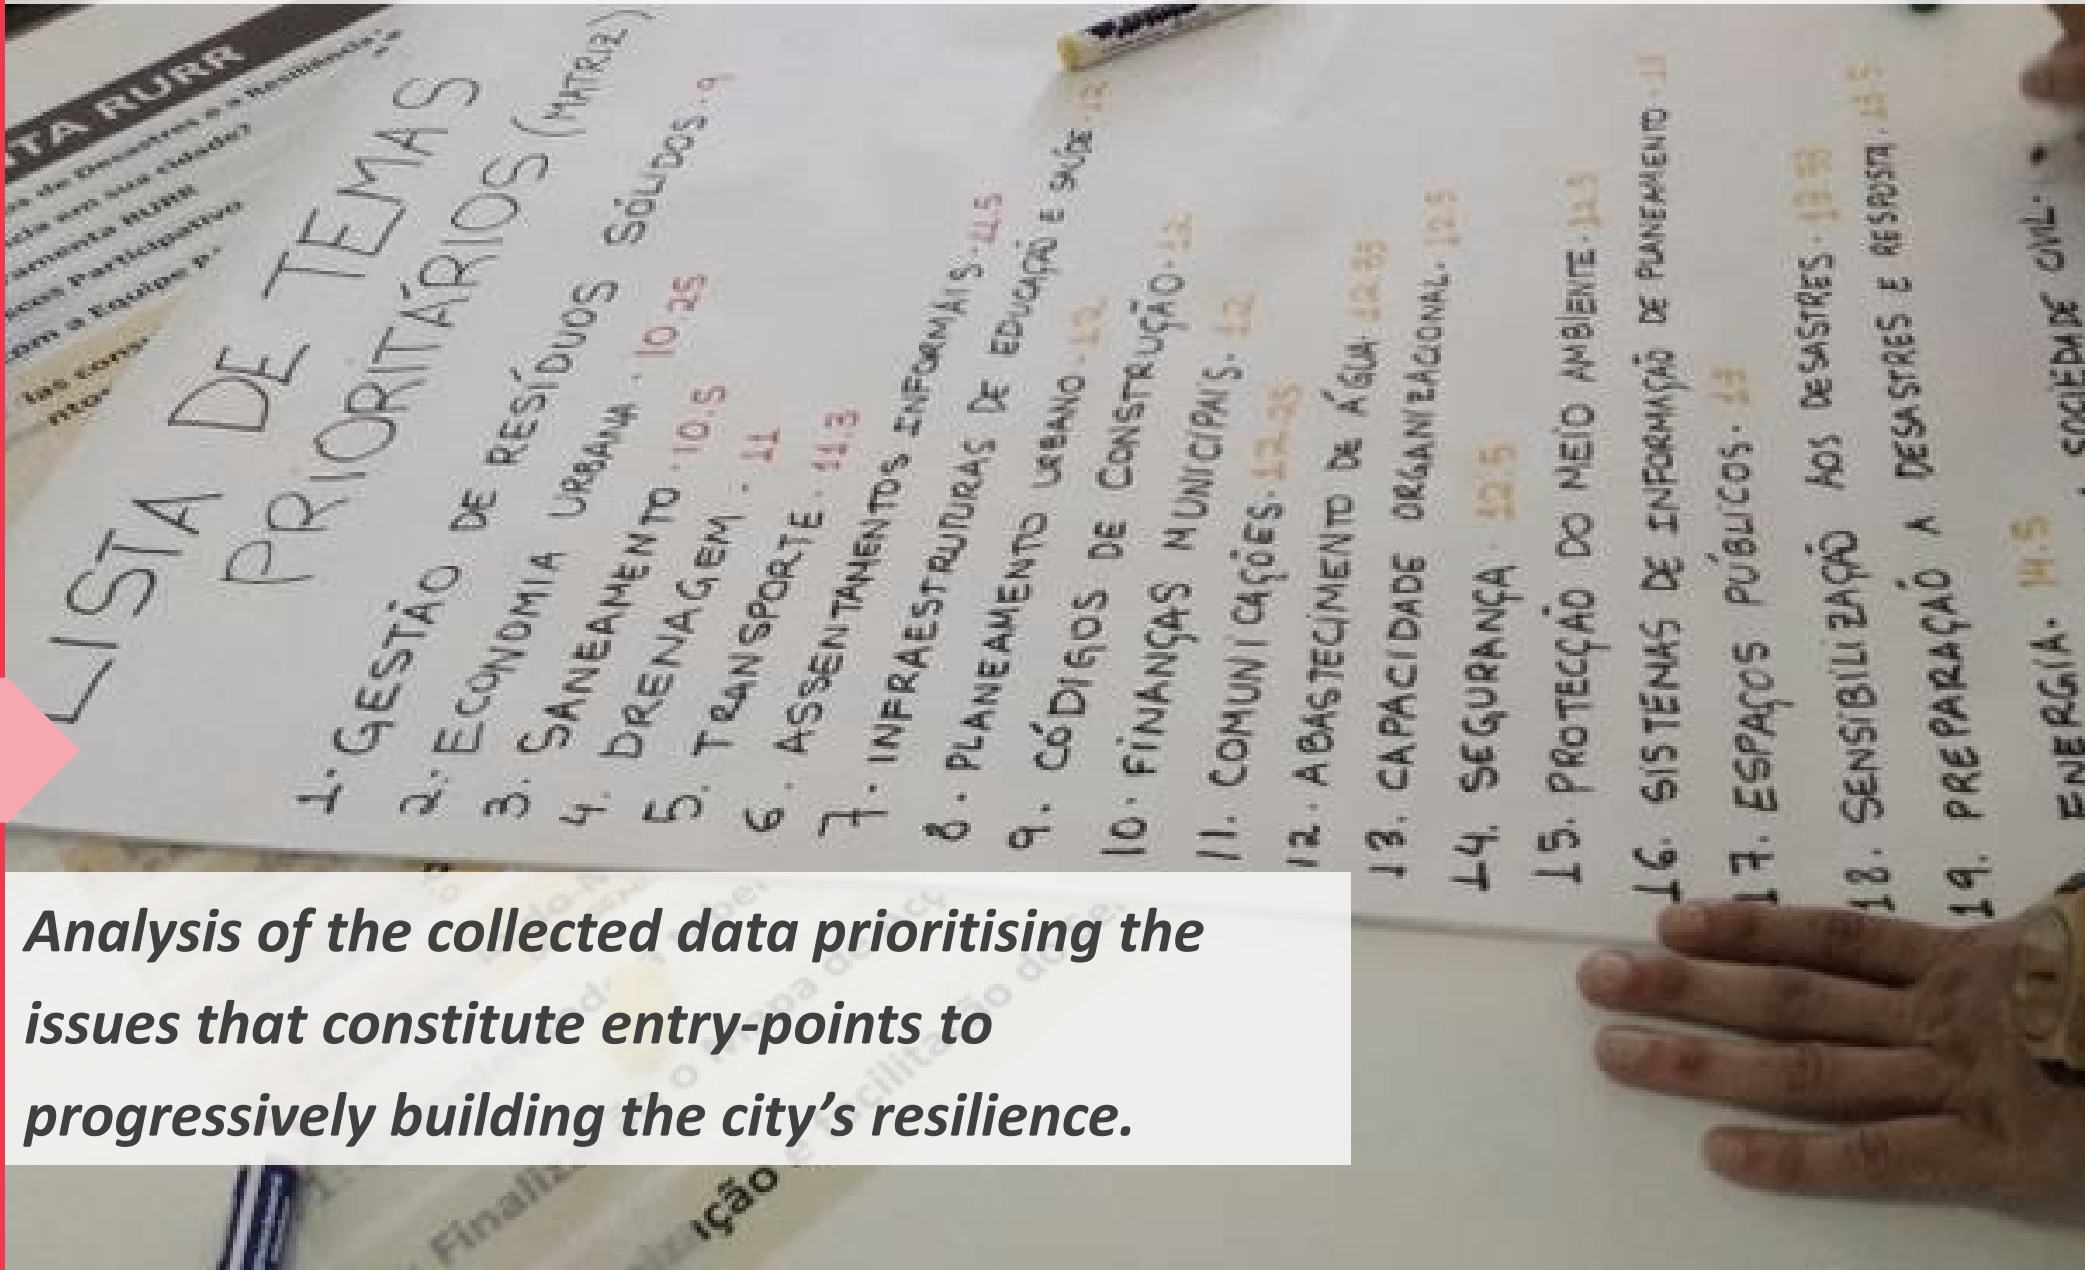 LISTA DE TEMAS
PRIORITÁRIOS (MATRIZ)
1. GESTÃO DE RESÍDUOS SÓLIDOS. 9
2. ECONOMIA URBANA. 10.25
3. SANEAMENTO. 10.5
4. DRENAGEM. 11
5. TRANSPORTE. 11.3
6. ASSENTAMENTOS INFORMAIS. 11.5
7. INFRAESTRUTURAS DE EDUCAÇÃO E SAÚDE. 12
8. PLANEAMENTO URBANO. 12
9. CÓDIGOS DE CONSTRUÇÃO. 12
10. FINANÇAS MUNICIPAIS. 12
11. COMUNICAÇÕES. 12.25
12. ABASTECIMENTO DE ÁGUA.
13. CAPACIDADE ORGANIZACIONAL. 12.5
14. SEGURANÇA. 12.5
15. PROTECÇÃO DO MEIO AMBIENTE.
16. SISTEMAS DE INFORMAÇÃO DE PLANEAMENTO.
17. ESPAÇOS PÚBLICOS.
18. SENSIBILIZAÇÃO AOS DESASTRES.
19. PREPARAÇÃO A DESASTRES E RESPOSTA.
ENERGIA. 14.5
SOCIEDADE CIVIL.
RURR
de Desastres e a Resiliência
em sua cidade?
RURR
Participativo
a Equipe
Analysis of the collected data prioritising the
issues that constitute entry-points to
progressively building the city's resilience.
o Mapa de
facilitação do
ição